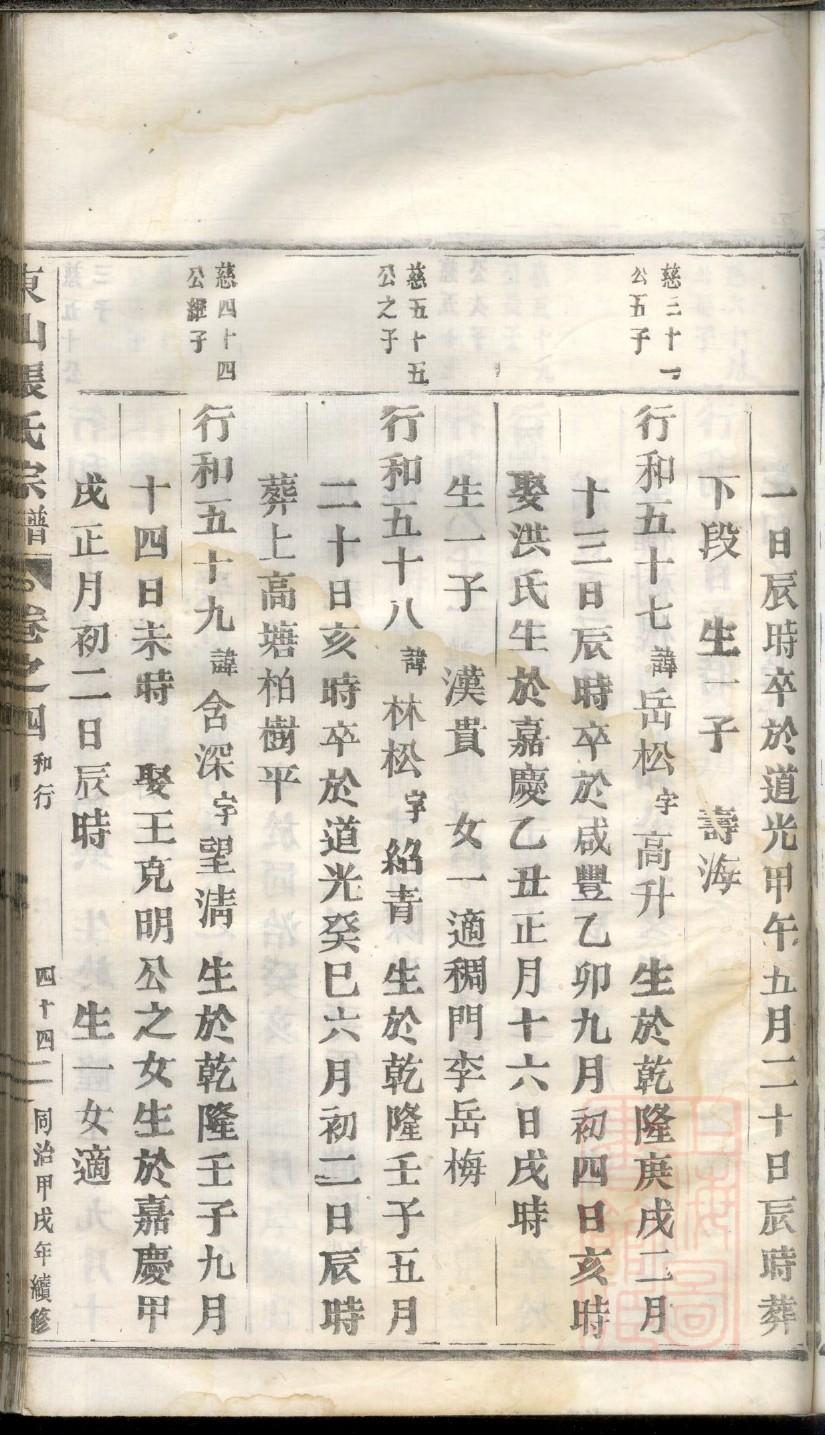 一日辰時卒於道光甲午五月二十日辰時葬
下段 生一子 壽海
慈三十一
公五子
行和五十七諱岳松字高升 生於乾隆庚戌二月
十三日辰時卒於咸豐乙卯九月初四日亥時
娶洪氏生於嘉慶乙丑正月十六日戌時
生一子 漢貴 女一適稠門李岳梅
慈五十五
公之子
行和五十八諱林松字紹青 生於乾隆壬子五月
二十日亥時卒於道光癸巳六月初二日辰時
葬上高塘柏樹平
慈四十四
公繼子
行和五十九諱含深字望清 生於乾隆壬子九月
十四日未時 娶王克明公之女生於嘉慶甲
戌正月初二日辰時 生一女適
東山張氏宗譜 卷之四 和行 四十四 同治甲戌年續修
上海圖書館藏